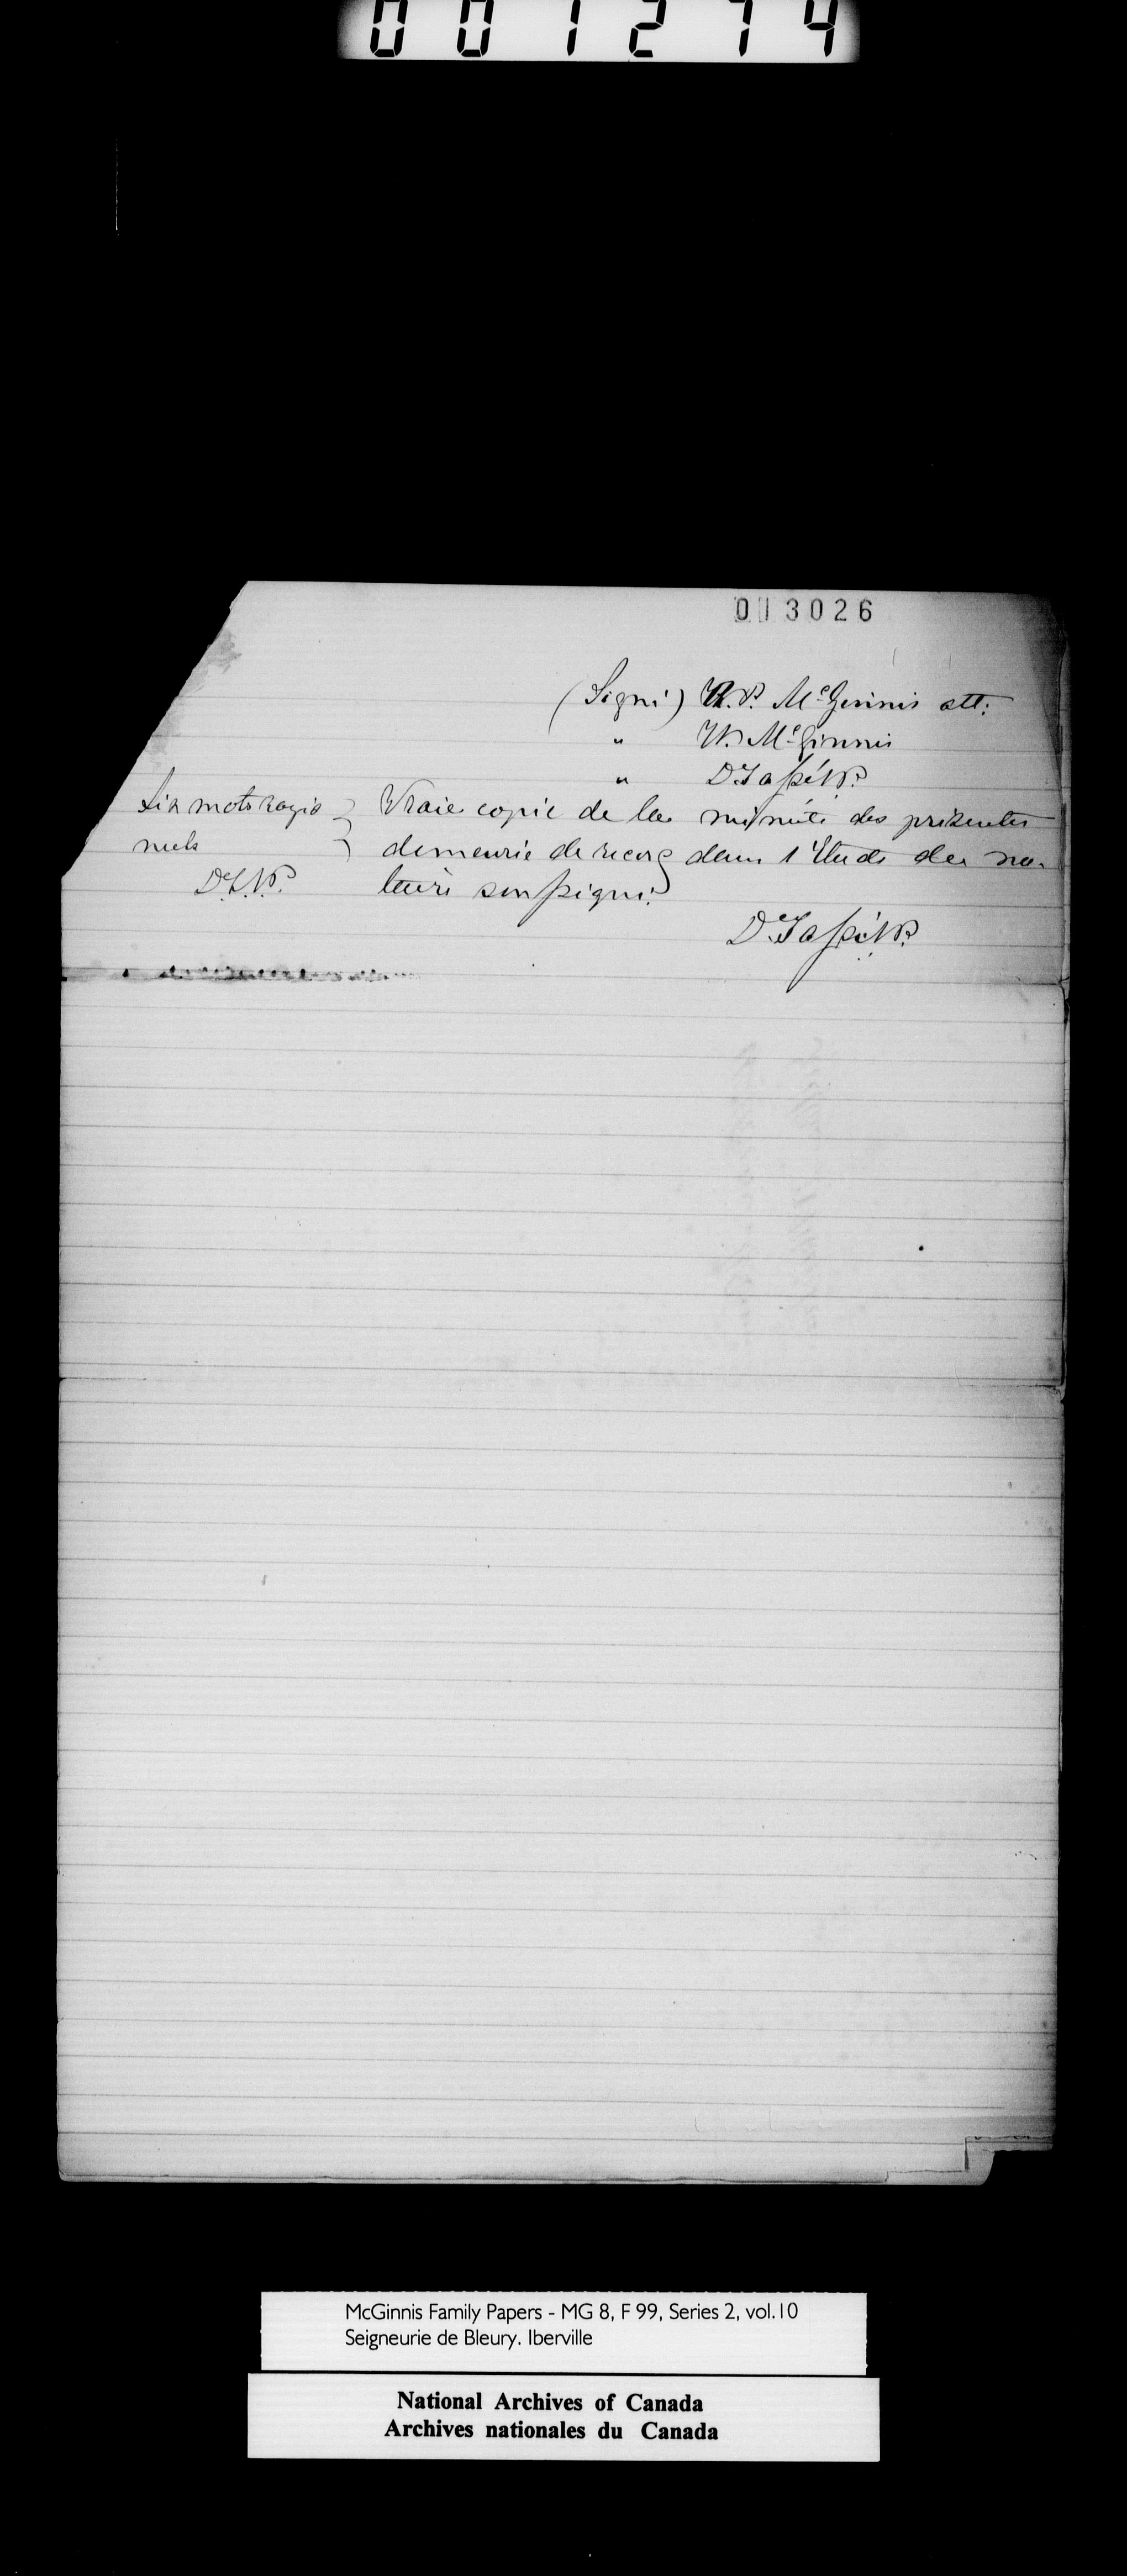 001274
013026
(Signé) R.P. McGinnis att:
" W. McGinnis
" D. Tassé N.P.
Six mots rayés
nuls
D.T.N.P.
Vraie copie de la minute des présentes
demeurée de record dans l'Etude du no-
taire soussigné.
D. Tassé N.P.
McGinnis Family Papers - MG 8, F 99, Series 2, vol.10
Seigneurie de Bleury. Iberville
National Archives of Canada
Archives nationales du Canada